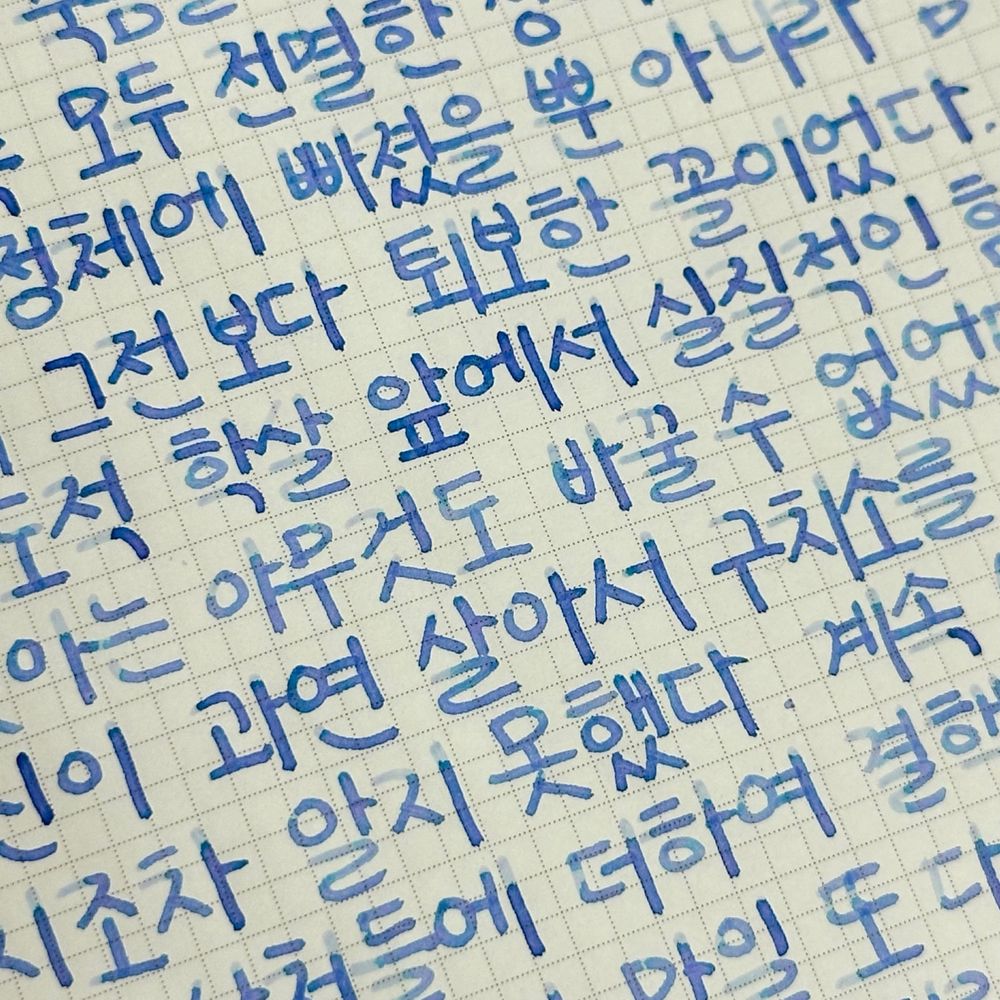 모두 전멸한
정체에 빠졌을 뿐 아니라
그전보다 퇴보한 꼴이었다.
학살 앞에서 실질적인
아는 아무것도 바꿀 수 없었
과연 살아서 구치소를
조차 알지 못했다. 계속
에 더하여 결
만일 또 다